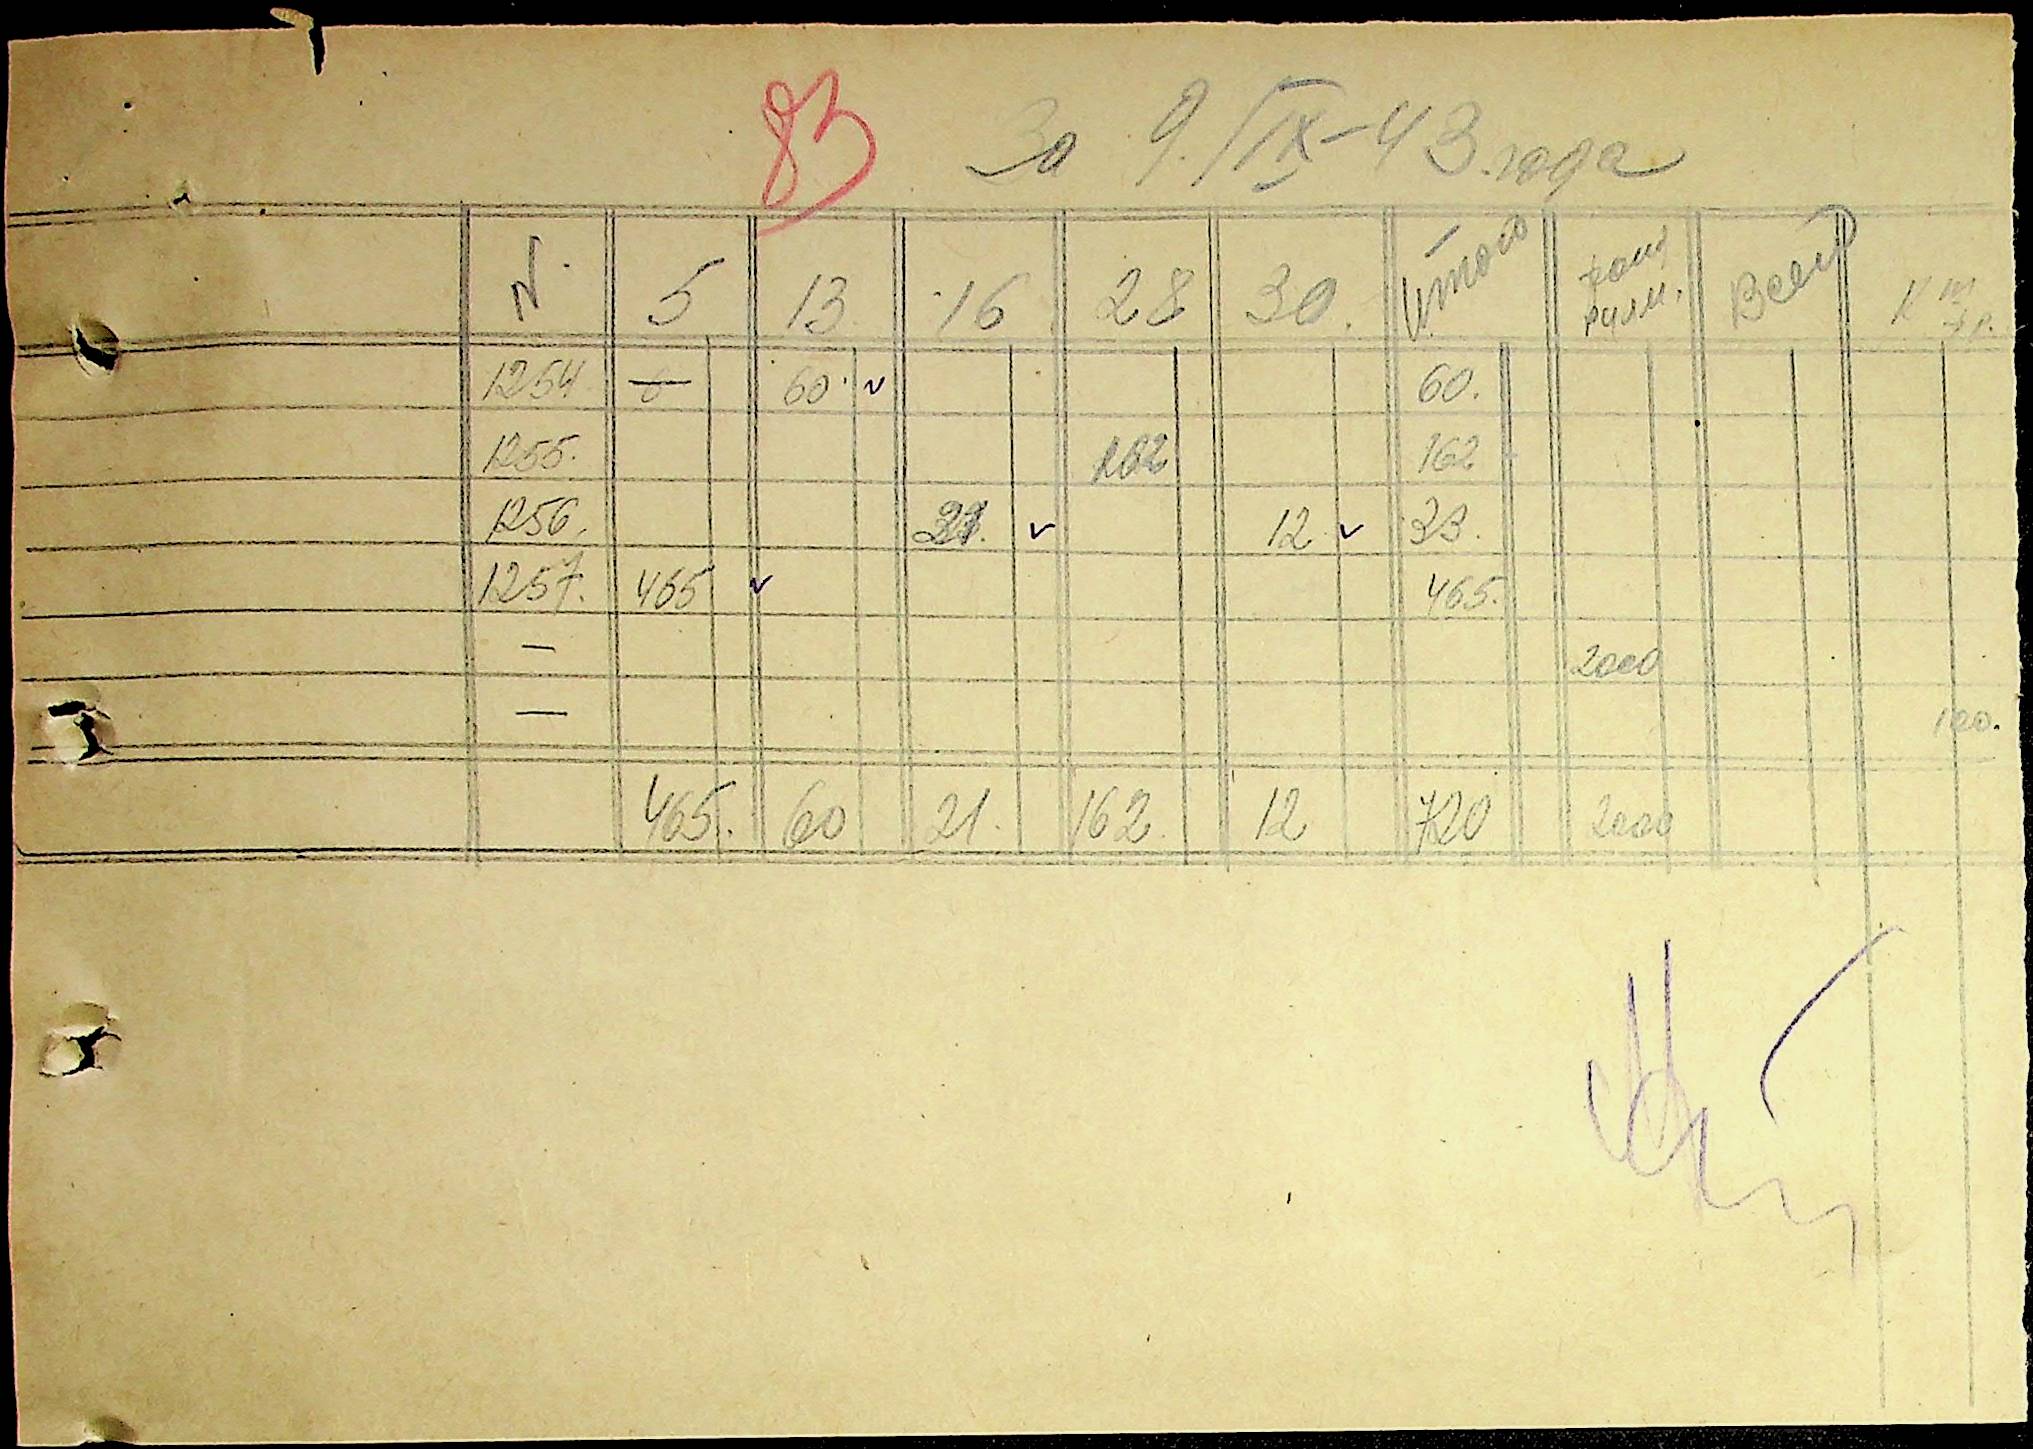 83 За 9/IX-43 года
N 5 13 16 28 30. Итого Всего
1254 60. 60.
1255. 162 162
1256. 21. 12 33.
1257. 465 465.
— 2000
— 120.
465. 60 21. 162. 12 720 2000